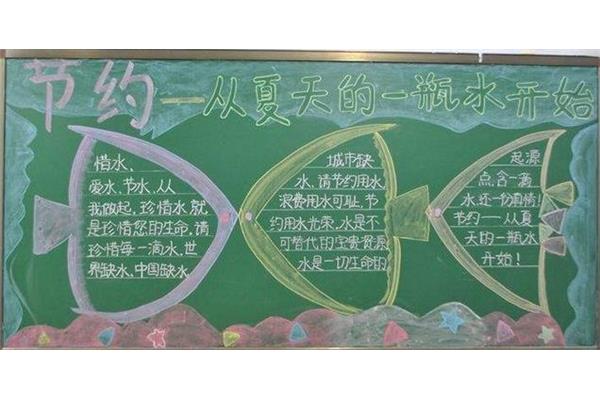 节约——从夏天的一瓶水开始
惜水、
爱水、节水、从
我做起，珍惜水就
是珍惜您的生命，请
珍惜每一滴水，世
界缺水，中国缺水
城市缺
水、请节约用水
浪费用水可耻，节
约用水光荣，水是不
可替代的宝贵资源
水是一切生命的
起源
点，含一滴
水，还一份真情！
节约——从夏
天的一瓶水
开始！